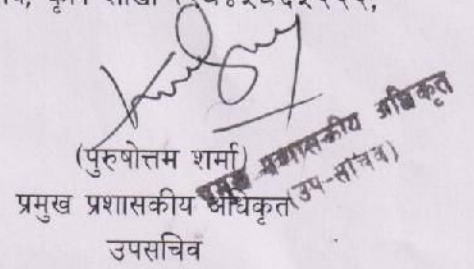 (पुरुषोत्तम शर्मा)
प्रमुख प्रशासकीय अधिकृत
उपसचिव
प्रमुख प्रशासकीय अधिकृत
(उप-सचिव)